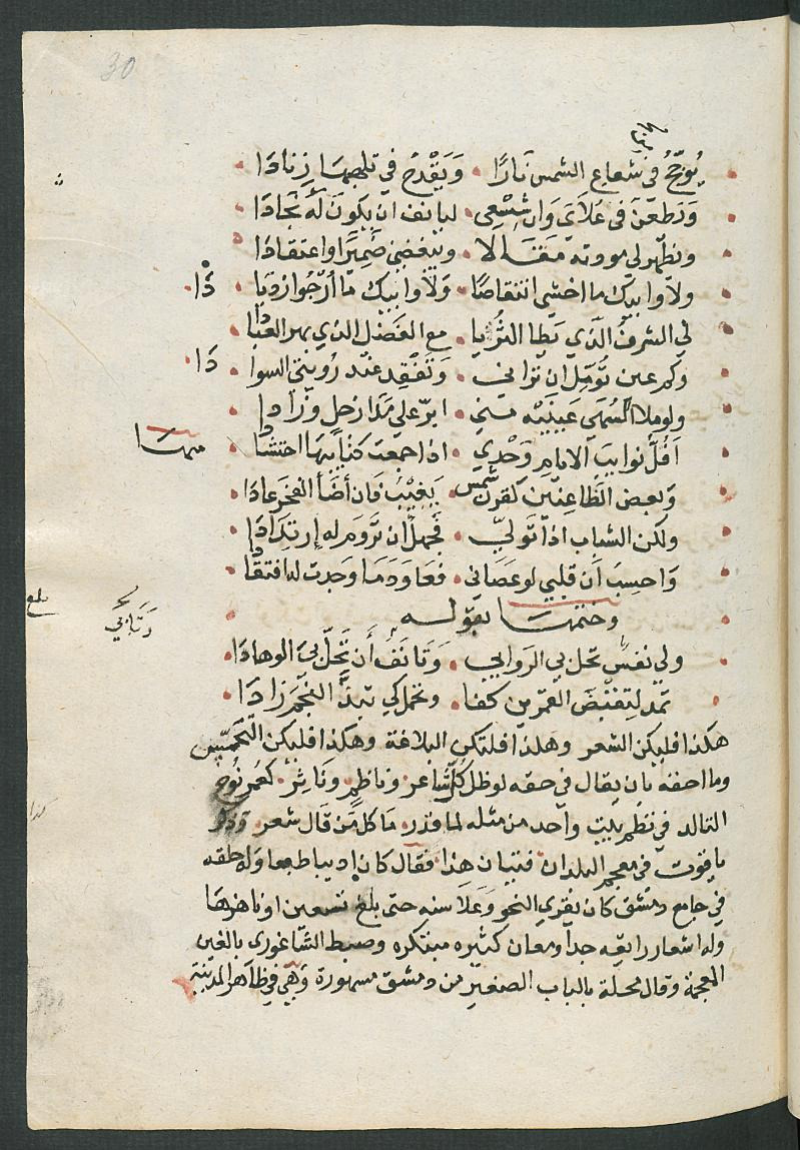 30
يُؤجّجُ في شعاع الشمس نَارًا • وَيَقْدَحُ في تلهبها زِنادَا
وَيَطعَن في عُلَايَ وَان شِسْعِى • ليانف ان يكون له نجادَا
ويظهر لي مودته مَقَالًا • ويبغضني ضَمِيرًا واعتقادَا
ولا وابيك ما اخشى انتقاصًا • وَلَا وابيك مَا ارْجُوا ازديا
ذَا
لي الشرفُ الَّذي يَطا الثُّريا • مع الفَضل الذي بهر العبادَا
وكم عين تُؤمّل ان تراني • وتَفقِد عند رُويتيَ السوا
دَا
ولو ملا السُهَى عَينَيه مني • ابرّ علي مَدَا زحل وزادا
افُلّ نوايبَ الايامِ وَحْدِي • اذا جمعت كتايبهَا احتشادَا
منها
وَبعض الظاعنين كقرن شمس • يَغيْبُ فان أضَا الفجر عادَا
ولكن الشباب اذا تَولّي • فجهل ان تروم له ارتدَادَا
وَاحسِبَ أن قلبي لو عصَانى • فعَاوَدَ مَا وَجدت له افتقادَا
وختمها بقوله
بلغ
ولي نفس تحل بي الروابي • وَتانَفُ أن تَحُلّ بيَ الوهادَا
تمد لتقبض القمر من كفا • وتحمل كي تبذّ النجمَ زادَا
هكذا فليكن الشعر وهكذا فلتكن البلاغة وهكذا فليكن التحميس
وما احقه بان يقال في حقه لو ظل كُلّ شاعر وناظم وناثر كعُمر نُوح
التالد في نظم بيت واحد من مثله لما قدر مَا كل مَن قال شعر وذكر
ياقوت في معجم البلدان فتيان هذا فقال كان اديبا طبعا وله حلقه
في جامع دمشق كان يقري النحو وعَلا سنه حتى بلغ تسعين او ناهزها
وله اشعار رايقه جدا ومعان كثيره مبتكره وضبط الشاغوري بالغين
المعجمة وقال محلة بالباب الصغير من دمشق مشهورة وَهْي في ظاهر المدينة